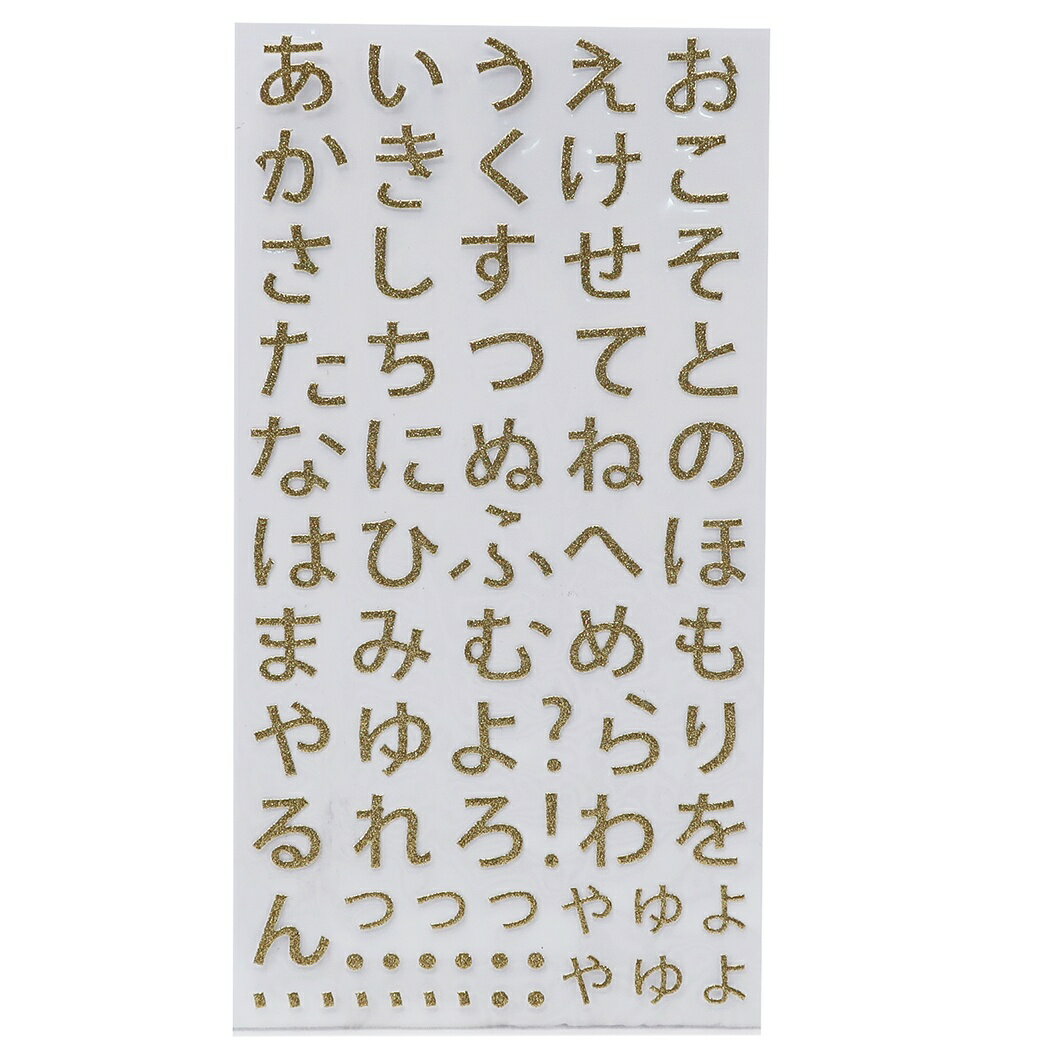 あいうえお
かきくけこ
さしすせそ
たちつてと
なにぬねの
はひふへほ
まみむめも
やゆよ?らり
るれろ!わを
んっっっゃゅょ
ゃゅょ